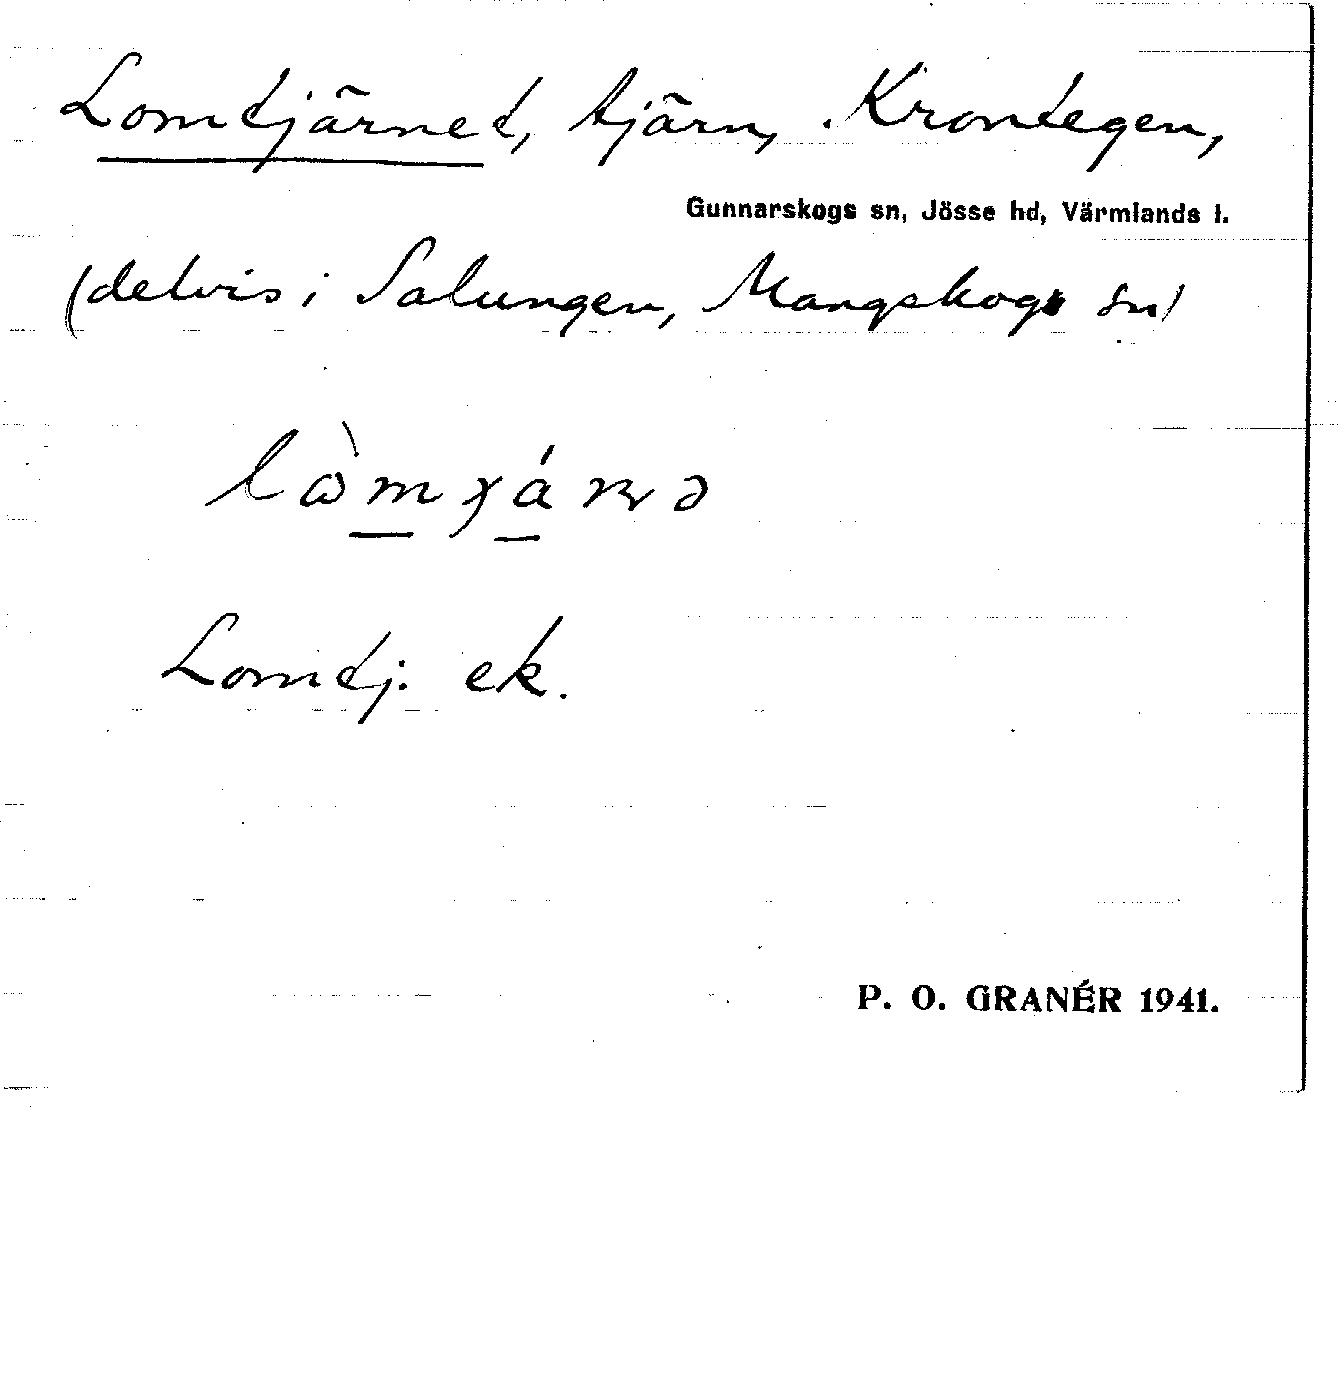 Lomtjärnet, tjärn, Krontegen,
Gunnarskogs sn, Jösse hd, Värmlands l.
(delvis i Salungen, Mangskogs sn)
Lomtj. ek.
P. O. GRANÉR 1941.